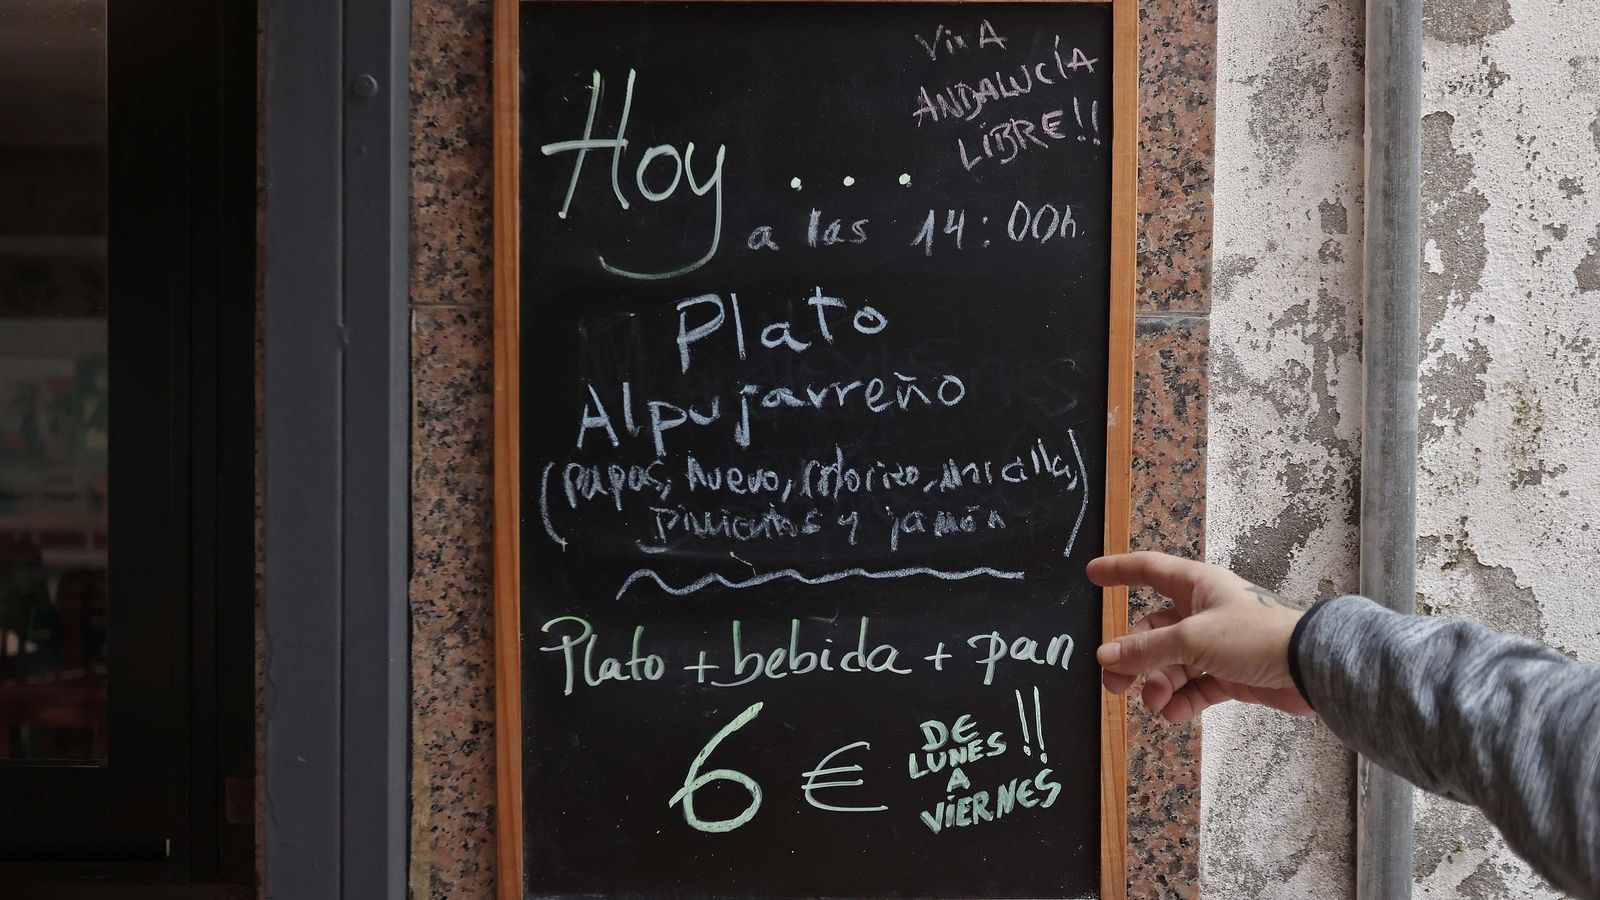 VIVA
ANDALUCÍA
LIBRE!!
Hoy ...
a las 14:00h.
Plato
Alpujarreño
(papas, huevo, chorizo, morcilla,
pimientos y jamón)
Plato + bebida + pan
6 €
DE
LUNES !!
A
VIERNES